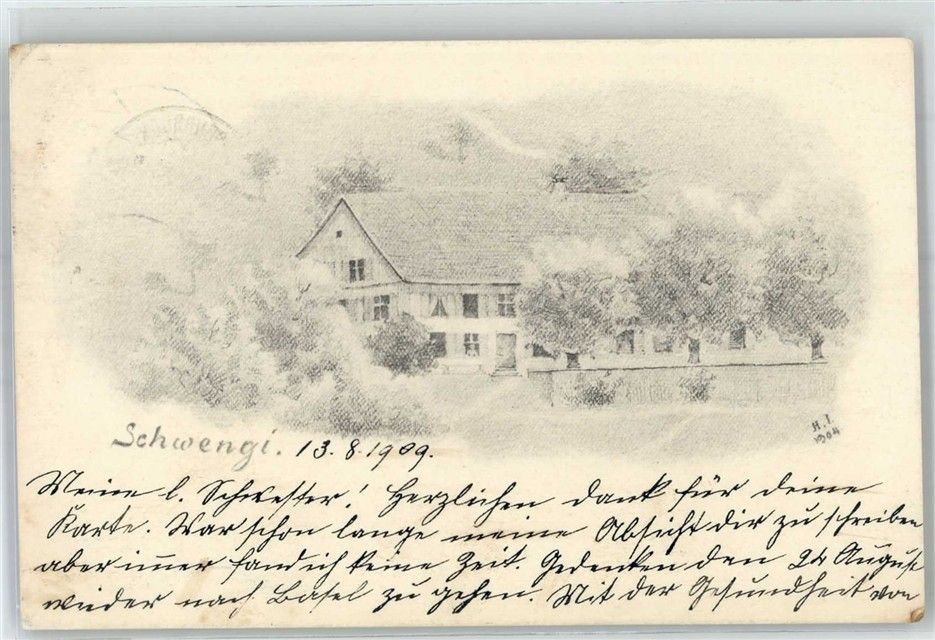 Schwengi. 13. 8. 1909.
H. I.
1904
Meine l. Schwester! Herzlichen Dank für deine
Karte. War schon lange meine Absicht dir zu schreiben
aber immer fand ich keine Zeit. Gedenken den 24 August
wieder nach Basel zu gehen. Mit der Gesundheit von